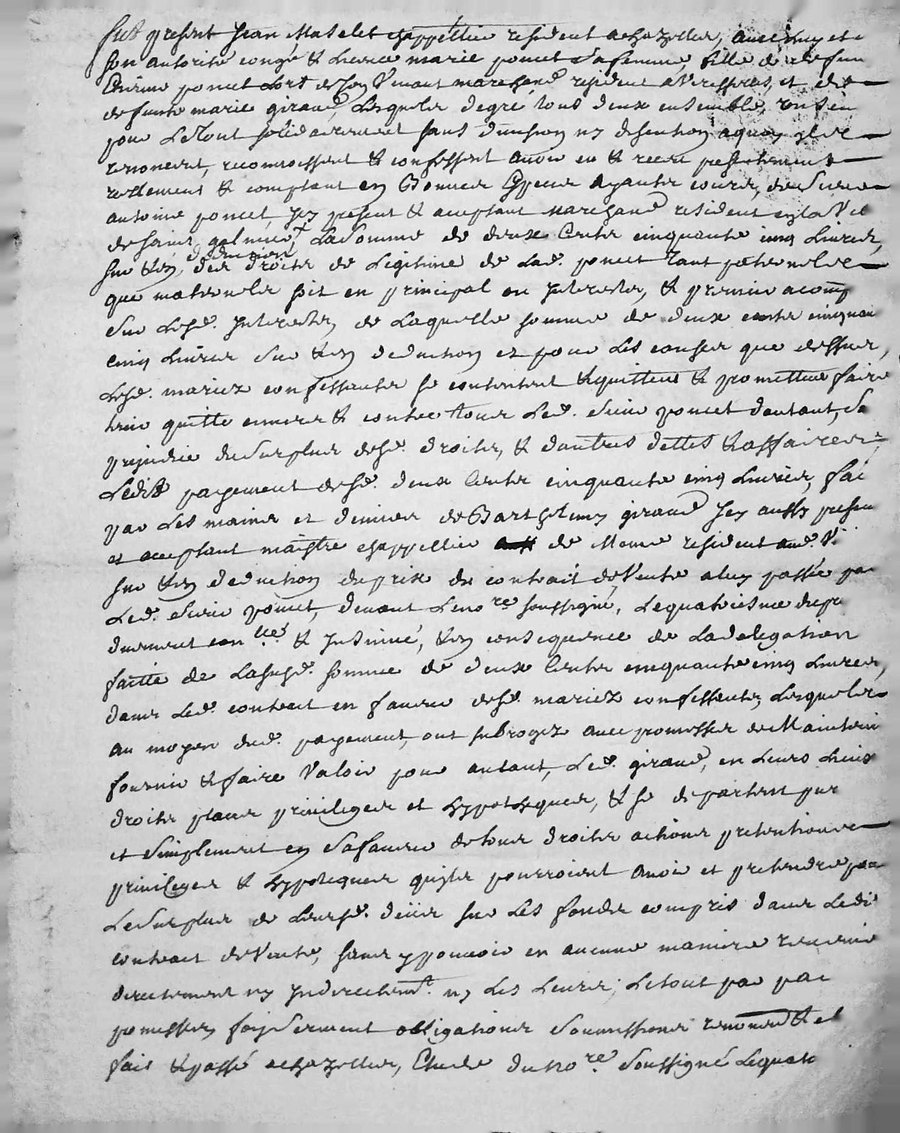 fut présent Jean Matelet chappellier résident a chazelles, avec luy et de
son autorité congé & licence marie poncet sa femme fille de deffun
Etienne poncet lors de son vivant marchand résident a Viressetas, et de
deffunte marie giraud, Lesquels degré tous deux ensemble,
pour Le tout solidairement sans division ny discution a quoy ils
renoncent, reconnoissent & confessent avoir eu & receu présentement
réellement & comptant en Bonnes Especes ayantes cours, de sieur
antoine poncet Icy présent & aceptant marchand résident en la Vil
de saint galmier, La somme de deux Cents cinquante cinq Livres,
sur & en déduction des droits de Legitime de Lad. poncet tant paternels
que maternels soit en principal ou Interests, & premier acomp
sur Lesd. Interests, de Laquelle somme de deux cents cinquan
cinq Livres sur & en deduction et pour Les causes que dessus,
Lesd. mariez confessants se contentent & quittent & promettent faire
tenir quitte envers & contre tous Led. sieur poncet d'autant, sa
prejudice du surplus desd. droits, & d'autres dettes & affaires
Ledit payement desd. deux Cents cinquante cinq Livres, fai
par Les mains et deniers de Barthelemy giraud Icy aussy présen
et aceptant maistre chappellier de Meme résident aud. Vi
sur & en deduction du prix du contrait de Vente a luy passée pa
Led. sieur poncet, devant Le no.re soussigné, Le quatorsieme
duement con.llé & Insinué, & en consequence de La delegation
faitte de Lasusd. somme de deux Cents cinquante cinq Livres,
dans Led. contrait en faveur desd. mariez confessants, Lesquels
au moyen dud. payement, ont subrogez avec promesses de Mainteni
fournir & faire Valoir pour autant, Led. giraud, en Leurs Lieux
droits places privileges et hypoteques, & se departent pur
et simplement en sa faveur de tous droits actions pretentions
privileges & hypoteques qu'ils pourroient avoir et pretendre pou
Le surplus de Leursd. deus sur Les fonds compris dans Ledi
contrait de Vente, sans y pouvoir en aucune maniere revenir
directement ny Indirectem.t ny Les Leurs; Le tout par pac
promesses, foy serment obligations soumissions renond & cl
fait & passé a chazelles, Etude du no.re soussigné Le quato